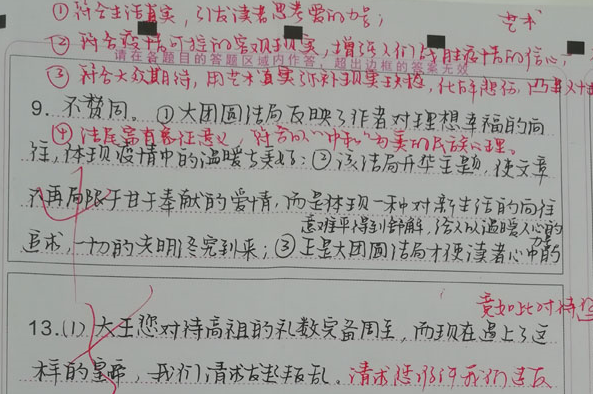 ①符合生活真实，引发读者思考爱的力量；
艺术
②符合疫情可控的客观现实，增强人们战胜疫情的信心；
请在各题目的答题区域内作答，超出边框的答案无效
③符合大众期待，用艺术真实弥补现实缺憾，化解悲伤，
9. 不赞同。①大团圆结局反映了作者对理想幸福的向
④结尾富有象征意义，符合以"中和"为美的民族心理。
往，体现疫情中的温暖与美好；②该结局升华主题，使文章
不再局限于甘于奉献的爱情，而是体现一种对新生活的向往
意难平得到舒解，给人以温暖人心的
力量
追求，一切的文明终究到来；③正是大团圆结局才使读者心中的
竟如此对待
13.(1) 大王您对待高祖的礼数完备周全，而现在遇上了这
样的皇帝，我们请求发起叛乱。请求您允许我们造反